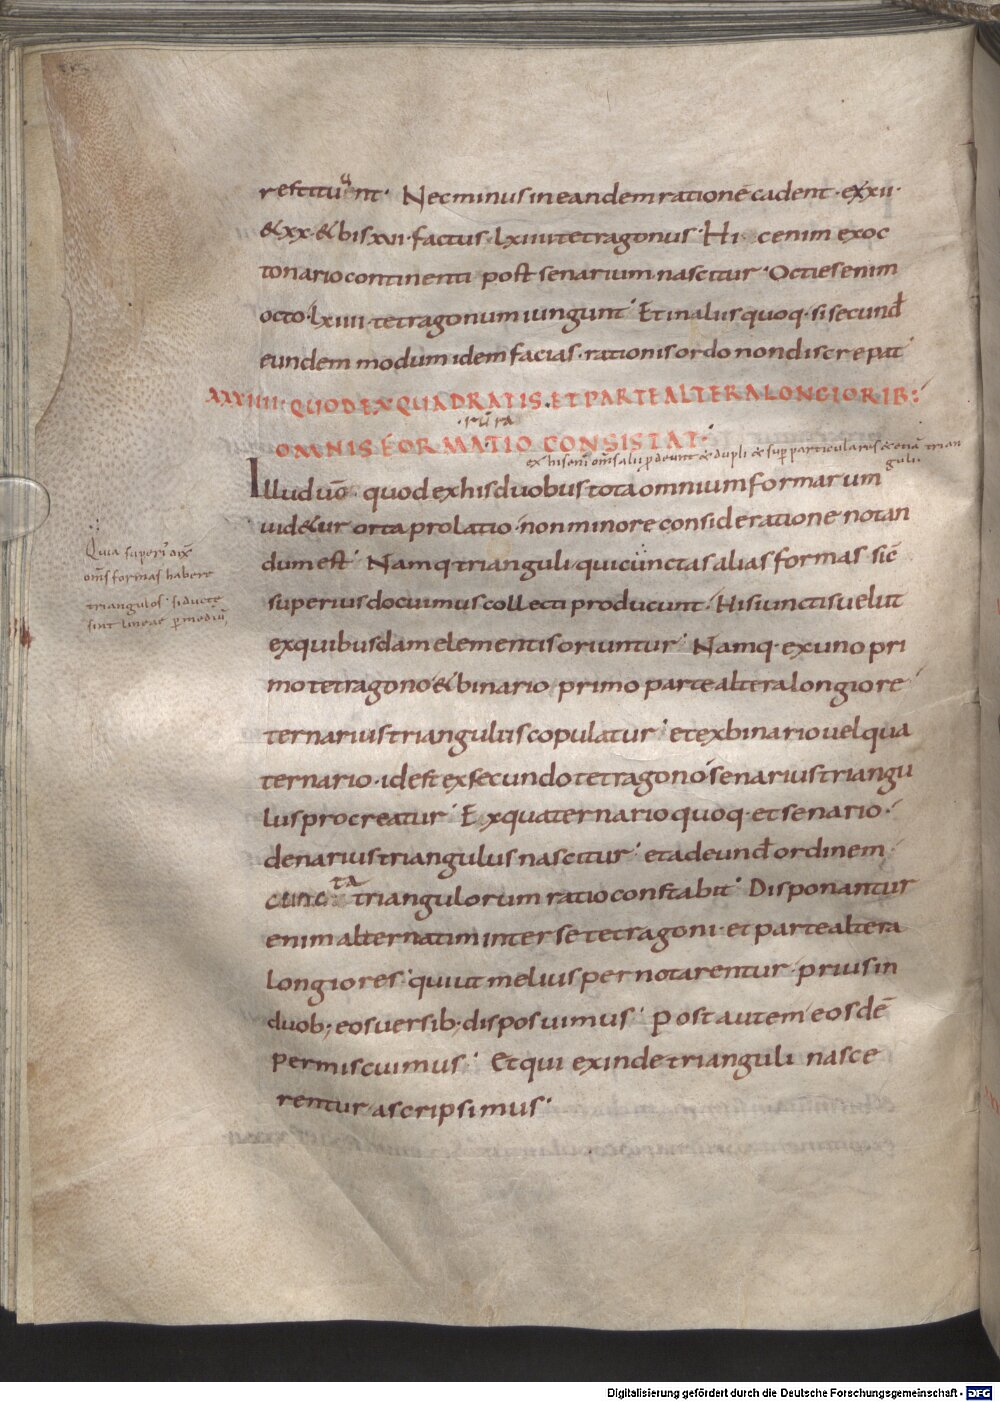 restituunt. Nec minus in eandem rationē cadent. exxii.
& xx. & bis xvi. factus. lxiiii tetragonus. Hic enim ex oc
tonario continenti post senarium nascitur. Octies enim
octo. lxiiii. tetragonum iungunt. Et in aliis quoq. si secund
eundem modum idem facias. rationis ordo non discrepat
XXXIIII. QUOD EX QUADRATIS. ET PARTE ALTERA LONGIORIB:
OMNIS FORMATIO CONSISTAT.
Illud uō. quod ex his duobus tota omnium formarum
uid&ur orta prolatio. non minore consideratione notan
dum est. Namq trianguli. qui cunctas alias formas. sic
superius docuimus collecti producunt. His iunctis uelut
ex quibusdam elementis oriuntur. Namq. ex uno pri
mo tetragono & binario primo parte altera longiore
ternarius triangulus copulatur. et ex binario uel qua
ternario. id est ex secundo tetragono senarius triangu
lus procreatur. Ex quaternario quoq. et senario.
denarius triangulus nascitur. et ad eund ordinem
cuncta triangulorum ratio constabit. Disponantur
enim alternatim inter se tetragoni. et parte altera
longiores. qui ut melius pernotarentur. prius in
duob; eos uersib; disposuimus. Post autem eosdē
permiscuimus. Et qui exinde trianguli nasce
rentur ascripsimus.
Quia superi' dix̄
om̄s formas habere
triangulos. si ducte
sint lineae p mediū
Digitalisierung gefördert durch die Deutsche Forschungsgemeinschaft - DFG